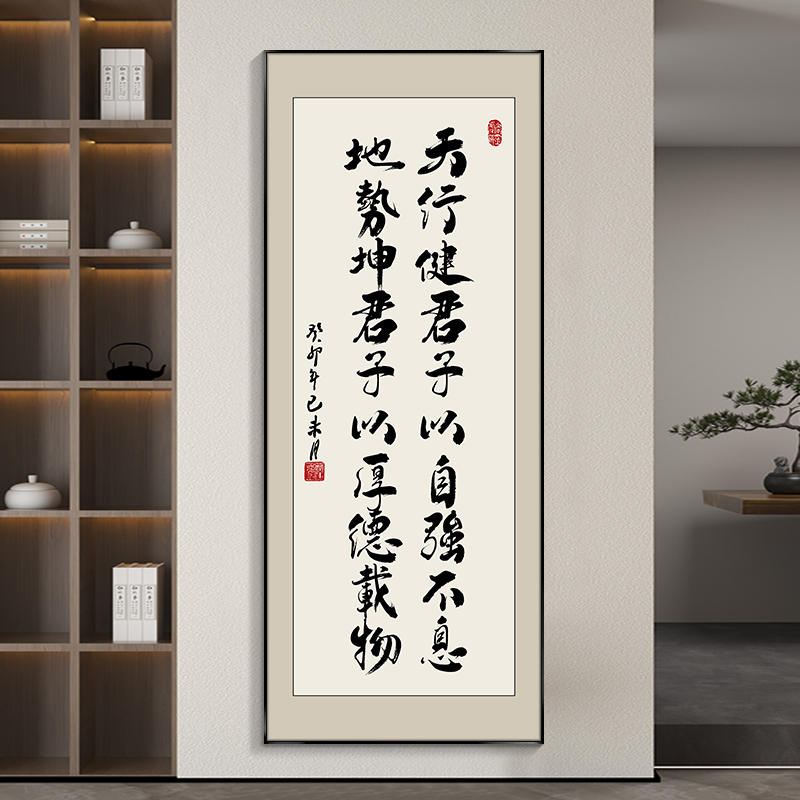 天行健君子以自強不息
地勢坤君子以厚德載物
癸卯年己未月